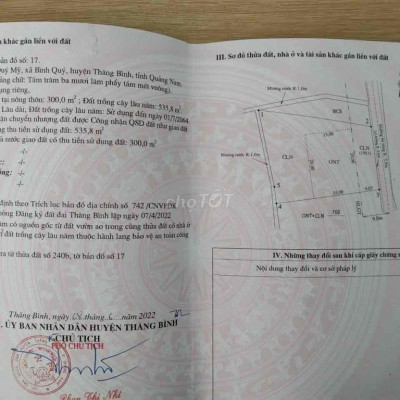 n khác gắn liền với đất
bản đồ số: 17.
Quý Mỹ, xã Bình Quý, huyện Thăng Bình, tỉnh Quảng Nam.
Bằng chữ: Tám trăm ba mươi lăm phẩy tám mét vuông).
dụng riêng.
tại nông thôn: 300,0 m²; Đất trồng cây lâu năm: 535,8 m²
Lâu dài; Đất trồng cây lâu năm: Sử dụng đến ngày 01/7/2064.
ận chuyển nhượng đất được Công nhận QSD đất như giao đất
ng thu tiền sử dụng đất: 535,8 m²
nước giao đất có thu tiền sử dụng đất: 300,0 m²
-/-
-/-
-/-
định theo Trích lục bản đồ địa chính số 742 /CNVPTB
hòng Đăng ký đất đai Thăng Bình lập ngày 07/4/2022
m có nguồn gốc từ đất vườn ao trong cùng thửa đất có nhà ở
m² đất trồng cây lâu năm thuộc hành lang bảo vệ an toàn công
ra từ thửa đất số 240b, tờ bản đồ số 17
Thăng Bình, ngày
2022
. ỦY BAN NHÂN DÂN HUYỆN THĂNG BÌNH
CHỦ TỊCH
PHÓ CHỦ TỊCH
Phan Thị Nhi
III. Sơ đồ thửa đất, nhà ở và tài sản khác gắn liền với đất
Mương nước R: 1.0m
Mương nước R: 1.0m
BCS
CLN
ONT
CLN
ONT+CLN
IV. Những thay đổi sau khi cấp giấy chứng
Nội dung thay đổi và cơ sở pháp lý
chợTỐT